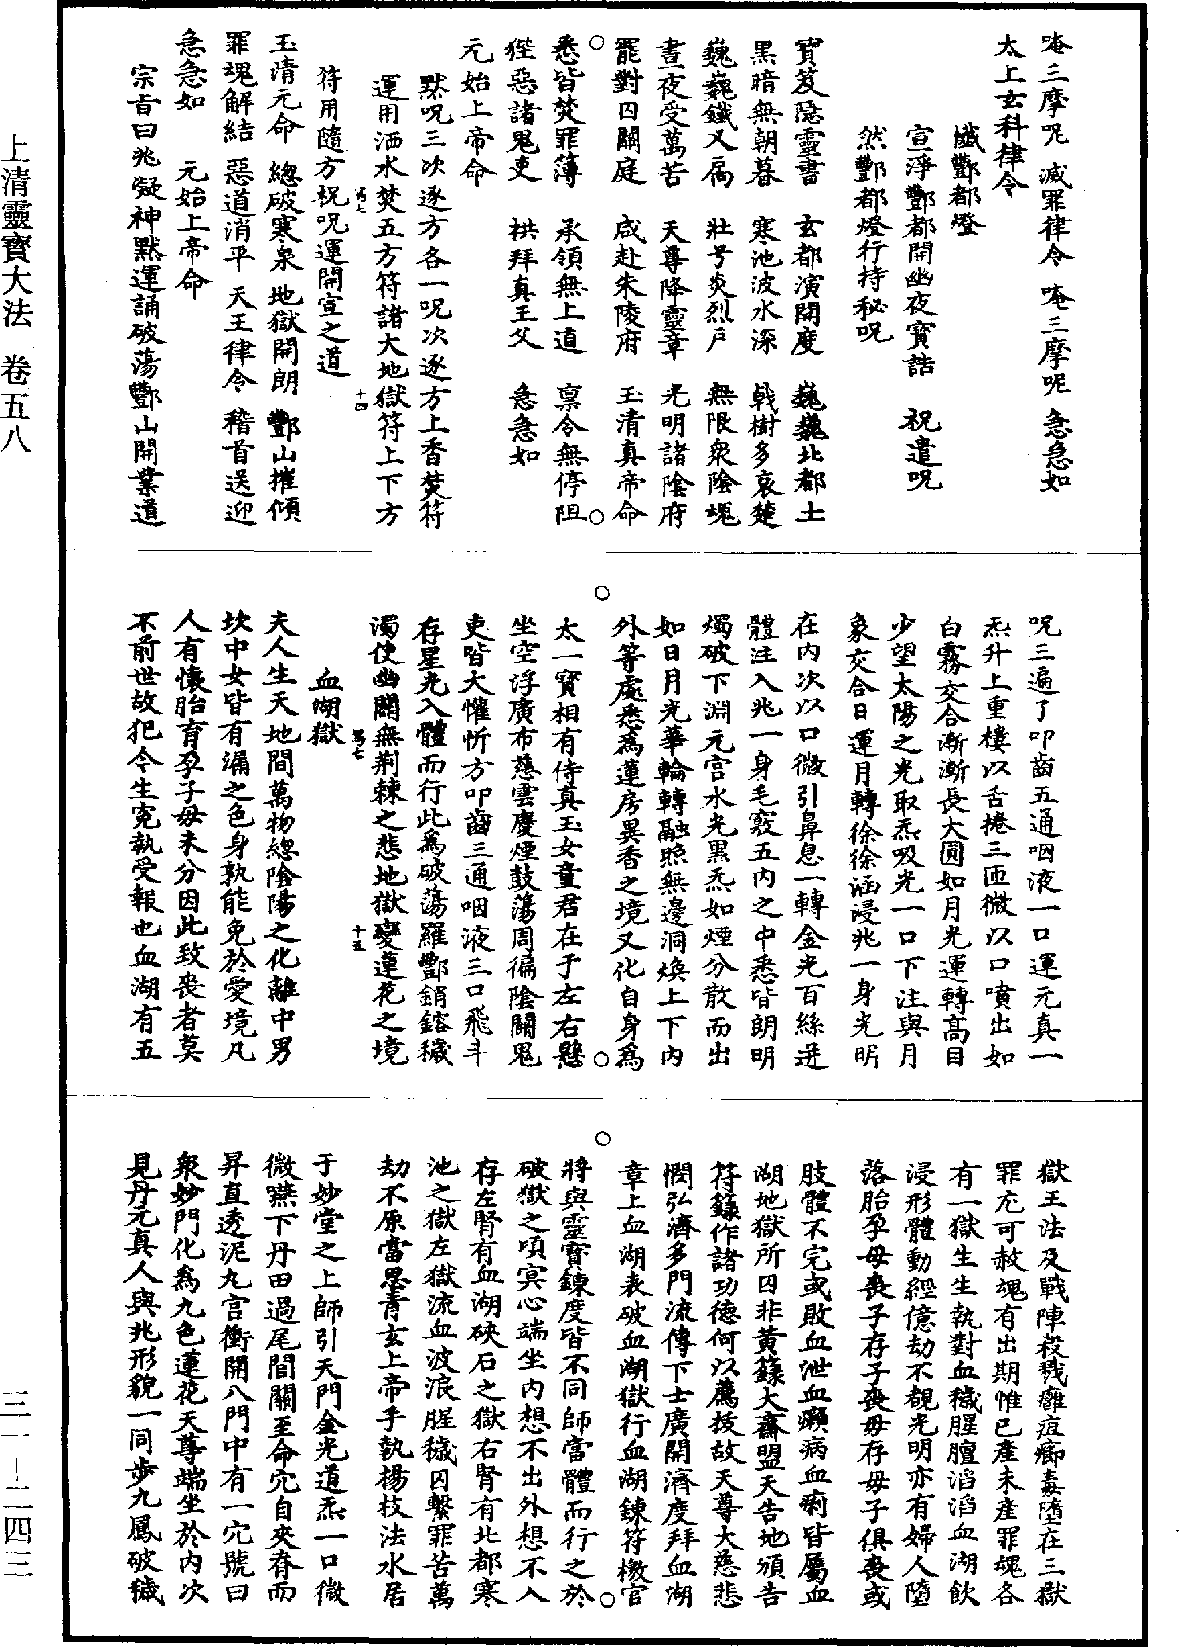 上清靈寶大法 卷五八
三一-二四三
唵三摩呢 滅罪律令 唵三摩呢 急急如
太上玄科律令
懺酆都燈
宣淨酆都開幽夜寶誥 祝遣呪
然酆都燈行持秘呪
寶笈隱靈書 玄都演開度 巍巍北都土
黑暗無朝暮 寒池波水深 戟樹多哀楚
巍巍鐵叉扃 壯号炎烈戶 無限衆陰塊
晝夜受萬苦 天尊降靈章 光明諸陰府
罷對囚關庭 咸赴朱陵府 玉清真帝命
悉皆焚罪簿 承領無上道 稟令無停阻
狴惡諸鬼吏 拱拜真王父 急急如
元始上帝命
默呪三次逐方各一呪次逐方上香焚符
運用洒水焚五方符諸大地獄符上下方
十四
符用隨方祝呪運開宣之道
玉清元命 總破寒泉 地獄開朗 酆山摧傾
罪魂解結 惡道消平 天王律令 稽首送迎
急急如 元始上帝命
宗旨曰兆凝神默運誦破蕩酆山開業道
呪三遍了叩齒五通咽液一口運元真一
炁升上重樓以舌捲三匝微以口噴出如
白霧交合漸漸長大圓如月光運轉高目
少望太陽之光取炁吸光一口下注與月
象交合日運月轉徐徐涵浸兆一身光明
在內次以口微引鼻息一轉金光百絲迸
體注入兆一身毛竅五內之中悉皆朗明
燭破下淵元宮水光黑炁如煙分散而出
如日月光華輪轉融照無邊洞煥上下內
外等處悉為蓮房異香之境又化自身為
太一寶相有侍真玉女童君在于左右懸
坐空浮廣布慈雲慶煙鼓蕩周徧陰關鬼
吏皆大懽忻方叩齒三通咽液三口飛斗
存星光入體而行此為破蕩羅酆銷鎔穢
濁使幽關無荆棘之悲地獄變蓮花之境
十五
血湖獄
夫人生天地間萬物總陰陽之化離中男
坎中女皆有漏之色身孰能免於愛境凡
人有懷胎育孕子母未分因此致喪者莫
不前世故犯令生寃執受報也血湖有五
獄王法及戰陣殺戮癰疽癤毒墮在三獄
罪充可赦魂有出期惟已產未產罪魂各
有一獄生生執對血穢腥膻滔滔血湖飲
浸形體動經億劫不覩光明亦有婦人墮
落胎孕母喪子存子喪母存母子俱喪或
肢體不完或敗血泄血癩病血痢皆屬血
湖地獄所囚非黃籙大齋盟天告地頒告
符籙作諸功德何以薦拔故天尊大慈悲
憫弘濟多門流傳下士廣開濟度拜血湖
章上血湖表破血湖獄行血湖鍊符檄官
將與靈寶鍊度皆不同師當體而行之於
破獄之頃冥心端坐內想不出外想不入
存左腎有血湖硤石之獄右腎有北都寒
池之獄左獄流血波浪腥穢囚繫罪苦萬
劫不原當思青玄上帝手執楊枝法水居
于妙堂之上師引天門金光道炁一口微
微嚥下丹田過尾閭關至命穴自夾脊而
昇直透泥丸宮衝開八門中有一穴號曰
衆妙門化為九色蓮花天尊端坐於內次
見丹元真人與兆形貌一同步九鳳破穢